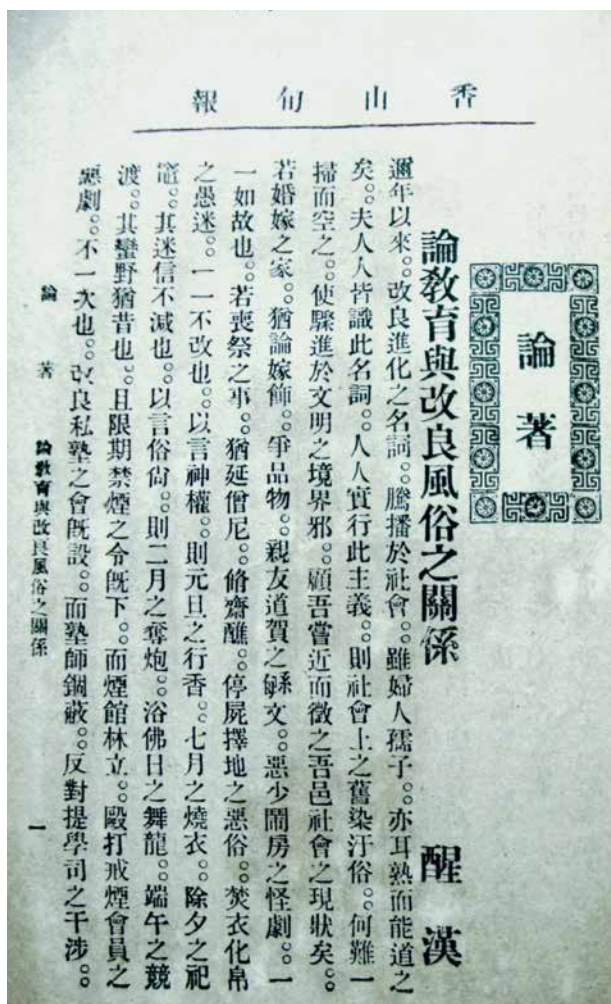 香山旬報
論著
論教育與改良風俗之關係　醒漢
邇年以來。。改良進化之名詞。。騰播於社會。。雖婦人孺子。。亦耳熟而能道之
矣。。夫人人皆識此名詞。。人人實行此主義。。則社會上之舊染汙俗。。何難一
掃而空之。。使驟進於文明之境界邪。。顧吾嘗近而徵之吾邑社會之現狀矣。。
若婚嫁之家。。猶論嫁飾。。爭品物。。親友道賀之緐文。。惡少鬧房之怪劇。。一
一如故也。。若喪祭之事。。猶延僧尼。。脩齋醮。。停屍擇地之惡俗。。焚衣化帛
之愚迷。。一一不改也。。以言神權。。則元旦之行香。。七月之燒衣。。除夕之祀
竈。。其迷信不減也。。以言俗尙。。則二月之奪炮。。浴佛日之舞龍。。端午之競
渡。。其蠻野猶昔也。。且限期禁煙之令旣下。。而煙館林立。。毆打戒煙會員之
惡劇。。不一次也。。改良私塾之會旣設。。而塾師錮蔽。。反對提學司之干涉。。
論著　論教育與改良風俗之關係　一